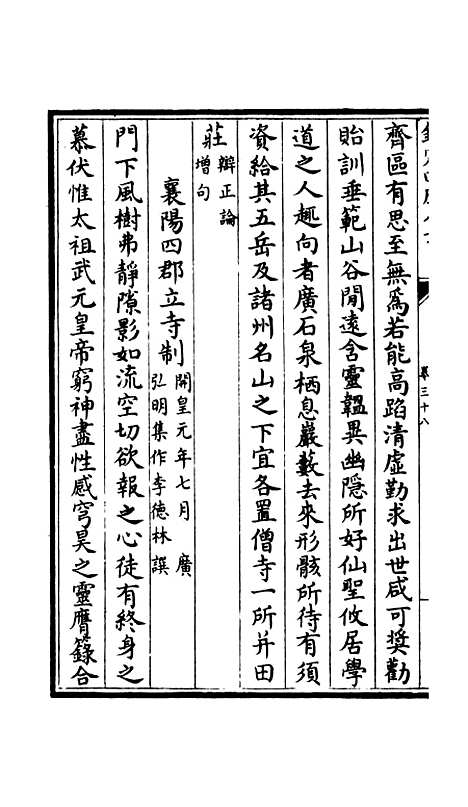 卷三十八
齊區有思至無爲若能高蹈清虛勤求出世咸可奬勸
貽訓垂範山谷閒遠含靈韞異幽隱所好仙聖攸居學
道之人趣向者廣石泉栖息巖藪去來形骸所待有須
資給其五岳及諸州名山之下宜各置僧寺一所并田
莊辯正論增句
襄陽四郡立寺制開皇元年七月廣弘明集作李德林譔
門下風樹弗靜隙影如流空切欲報之心徒有終身之
慕伏惟太祖武元皇帝窮神盡性感穹昊之靈膺籙合